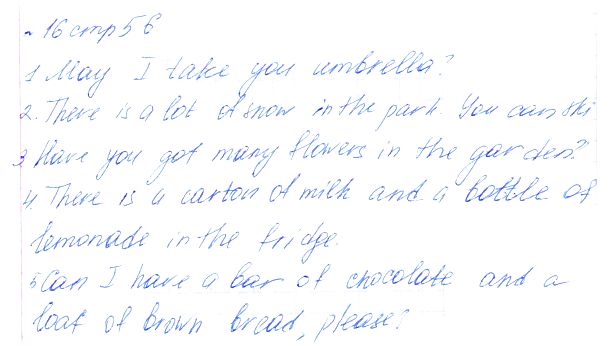 ~ 16 стр 56
1 May I take you umbrella?
2. There is a lot of snow in the park. You can ski
3 Have you got many flowers in the garden?
4. There is a carton of milk and a bottle of
lemonade in the fridge.
5 Can I have a bar of chocolate and a
loaf of brown bread, please?